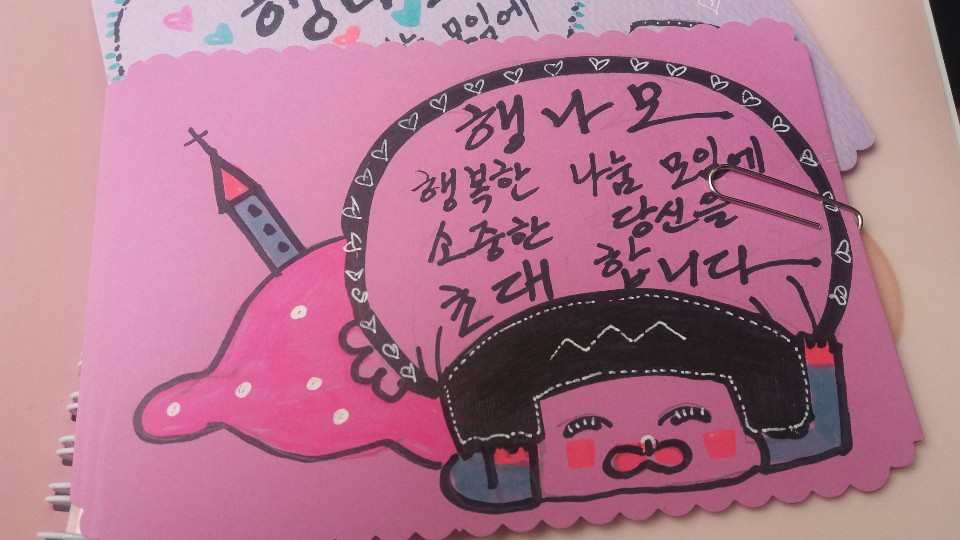 행나모
행복한 나눔 모임에
소중한 당신을
초대 합니다
모임에